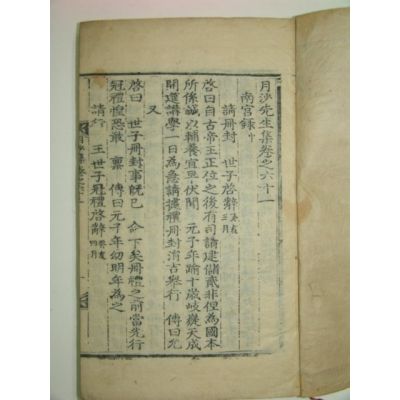 月沙先生集卷之六十一
南宮錄中
請冊封 世子啓辭 癸亥三月
啓曰自古帝王正位之後有司請建儲貳非但爲國本
所係誠以輔養宜早伏聞 元子年踰十歲岐嶷天成
開筵講學一日爲急請據禮冊封消吉擧行 傳曰允
又
啓曰 世子冊封事旣已 命下矣冊禮之前當先行
冠禮惶恐敢 禀 傳曰元子年幼明年爲之
請行 王世子冠禮啓辭 癸亥四月
月沙集卷六十一